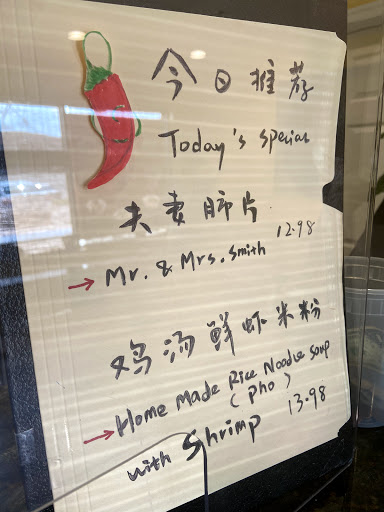 今日推荐
Today's special
夫妻肺片
12.98
→ Mr. & Mrs. Smith
鸡汤鲜虾米粉
→ Home Made Rice Noodle Soup
(Pho)
13.98
with Shrimp